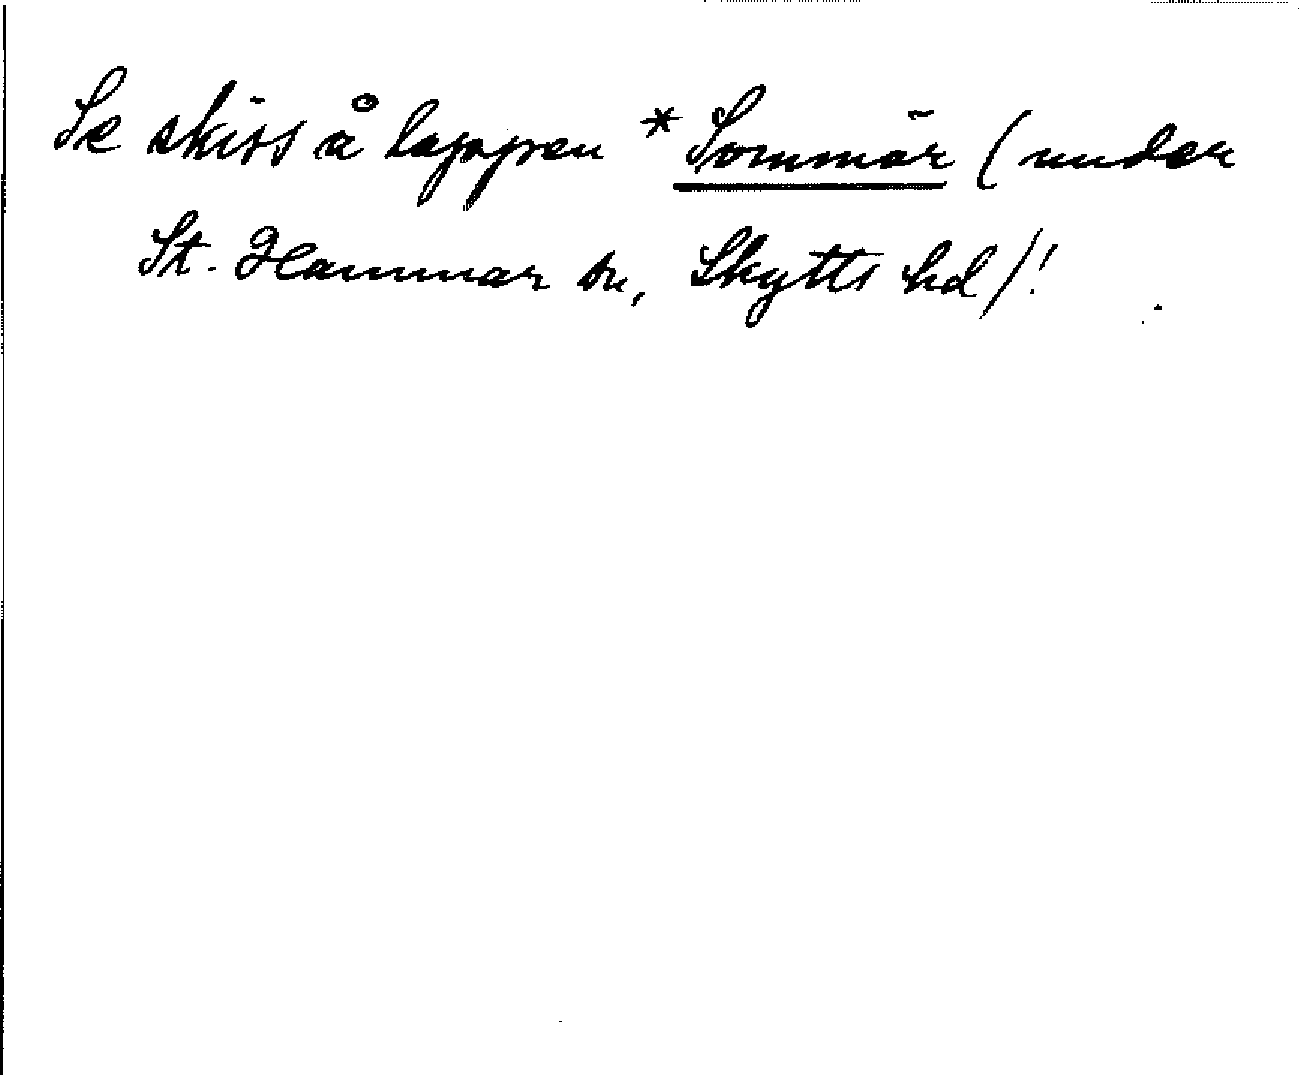 Se skiss å lappen *Sommär (under
St. Hammar sn, Skytts hd)!